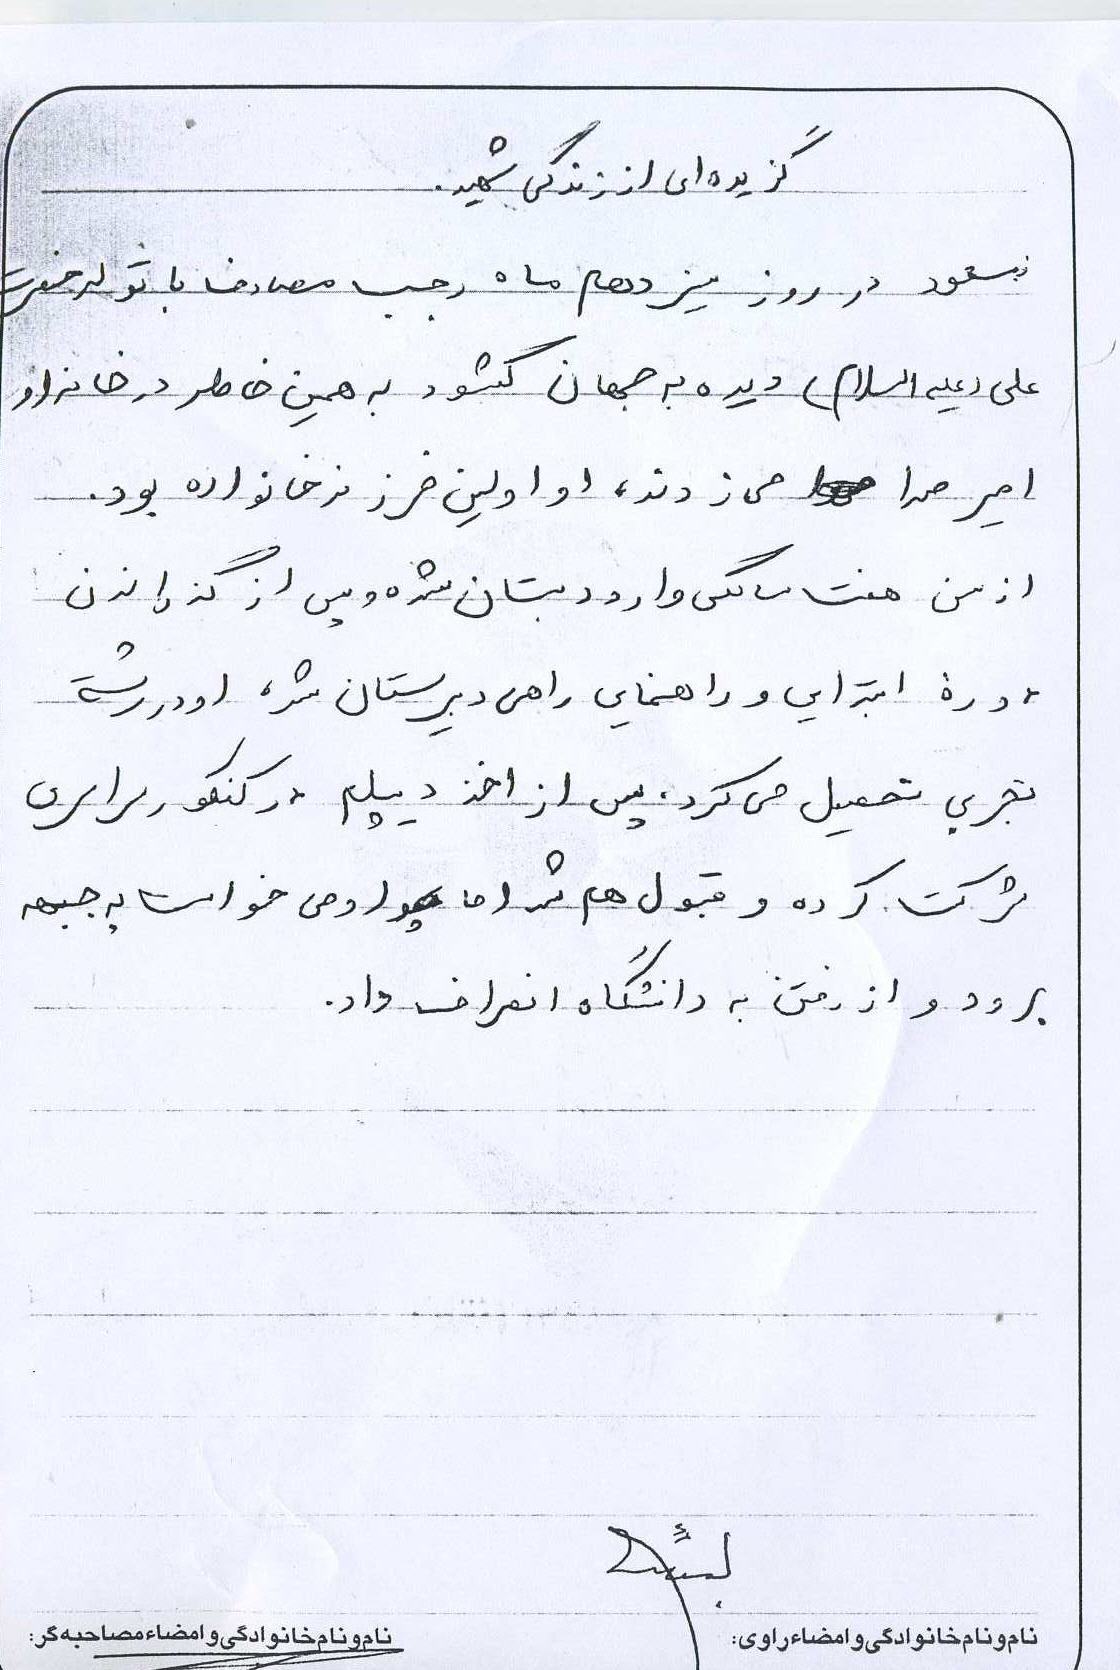 گزیده‌ای از زندگی شهید.
مسعود در روز سیزدهم ماه رجب مصادف با تولد حضرت
علی (علیه السلام) دیده به جهان گشود به همین خاطر در خانه او را
امیر صدا می‌زدند، او اولین فرزند خانواده بود.
از سن هفت سالگی وارد دبستان شده و پس از گذراندن
دورهٔ ابتدایی و راهنمایی راهی دبیرستان شد، او در رشته
تجربی تحصیل می‌کرد، پس از اخذ دیپلم در کنکور سراسری
شرکت کرده و قبول هم شد اما او می خواست به جبهه
برود و از رفتن به دانشگاه انصراف داد.
نام و نام خانوادگی و امضاء راوی:
نام و نام خانوادگی و امضاء مصاحبه‌گر: